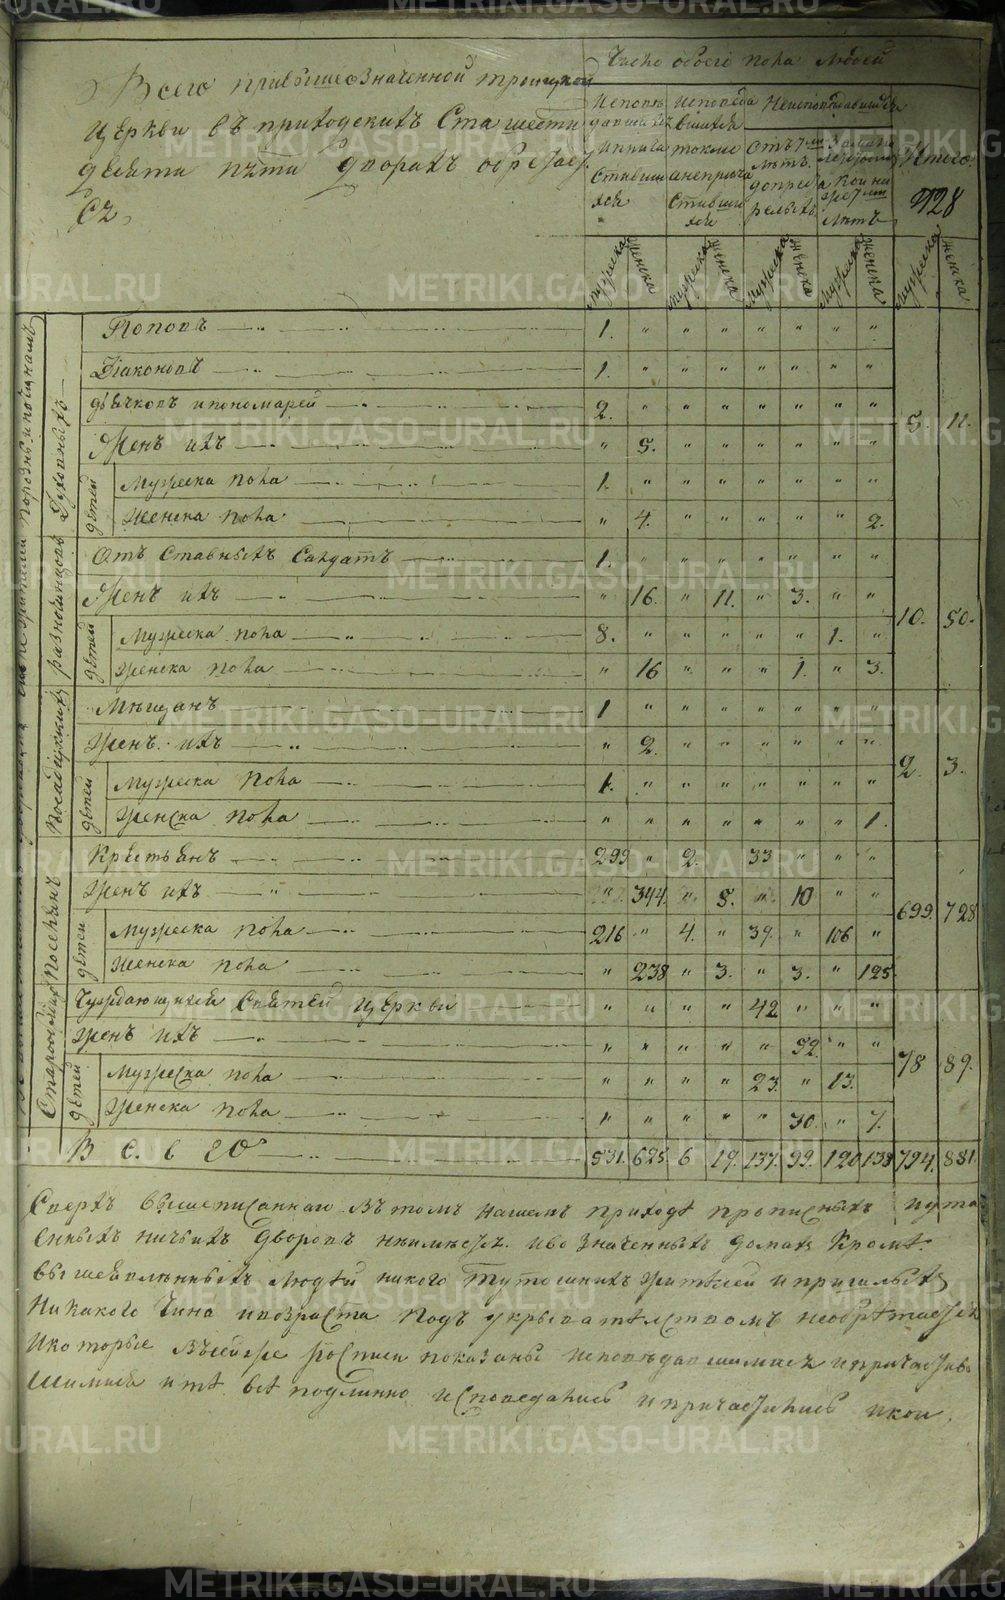 Всего привышеозначенной троицкой
церкви въ приходскихъ Ста шести
десяти пяти дворахъ обретает
ся
Число обоего пола людей
Исповедавшихся и причастившихся
Исповедавшихся токмо а непричастившихся
Неисповедавшихся
Отъ 7ми летъ до престарелыхъ
лет
Итого
428
мужеска женска мужеска женска мужеска женска мужеска женска мужеска женска
Духовныхъ
Поповъ 1. " " " " " " "
Диаконовъ 1. " " " " " " "
дьячковъ и пономарей 2. " " " " " " " 5. 11.
Женъ ихъ " 5. " " " " " "
детей
Мужеска пола 1. " " " " " " "
Женска пола " 4. " " " " " 2.
разночинцовъ
Отъ ставныхъ Салдатъ 1. " " " " " " "
Женъ ихъ " 16. " 11. " 3. " " 10. 50.
детей
Мужеска пола 8. " " " " " 1. "
Женска пола " 16 " " " 1. " 3.
Посадцкихъ
Мещанъ 1 " " " " " " "
Женъ ихъ " 2. " " " " " " 2. 3.
детей
Мужеска пола 1. " " " " " " "
Женска пола " " " " " " " 1.
Поселянъ
Крестьянъ 299 " 2. " 33 " " "
Женъ ихъ " 344. " 5. " 10 " " 699. 728.
детей
Мужеска пола 216 " 4. " 39. " 106 "
Женска пола " 238 " 3. " 3. " 125.
Чуждающихся Святей церкви " " " " 42 " " "
Женъ ихъ " " " " " 52. " " 78 89.
детей
Мужеска пола " " " " 23. " 13. "
Женска пола " " " " " 30. " 7.
Всего 531. 625. 6 19. 137. 99. 120 138 794. 881.
Сверхъ вышеписаннаго въ томъ нашемъ приходе прописныхъ и ута
енныхъ ничьихъ дворовъ неимеется. и во значенныхъ домахъ кроме
вышеявленныхъ людей никого тутошнихъ жителей и пришлыхъ
никакого чина и возраста подъ укрывателствомъ необретается
и которые въ сей же росписи показаны исповедавшимися и причастив
шимися и те все подлинно исповедались и причастились и кои
METRIKI.GASO-URAL.RU